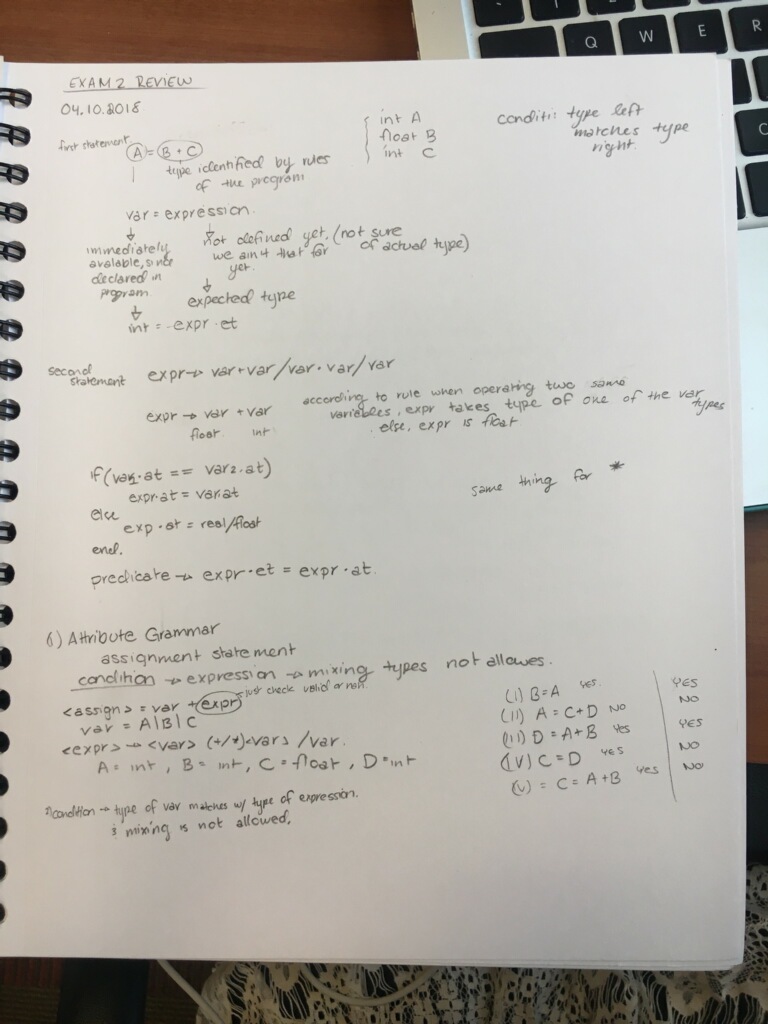 EXAM 2 REVIEW
04.10.2018
first statement A = B + C
type identified by rules
of the program
int A
float B
int C
conditi: type left
matches type
right.
var = expression.
immediately
avalable, since
declared in
program.
not defined yet, (not sure
we ain't that far of actual type)
yet.
expected type
int = expr.et
second
statement expr → var + var / var * var / var
expr → var + var
float int
according to rule when operating two same
variables, expr takes type of one of the var
types
else, expr is float
if (var1.at == var2.at)
expr.at = var.at
else
exp.at = real/float
end.
same thing for *
predicate → expr.et = expr.at.
6) Attribute Grammar
assignment statement
condition → expression → mixing types not allowes.
just check valid or non.
<assign> = var + expr
var = A|B|C
<expr> → <var> (+/*) <var> / var.
A = int, B = int, C = float, D = int
(I) B=A YES. YES
(II) A = C+D NO NO
(III) D = A+B Yes YES
(IV) C = D YES NO
(V) = C = A+B YES NO
2) condition → type of var matches w/ type of expression.
& mixing is not allowed.
Q W E R